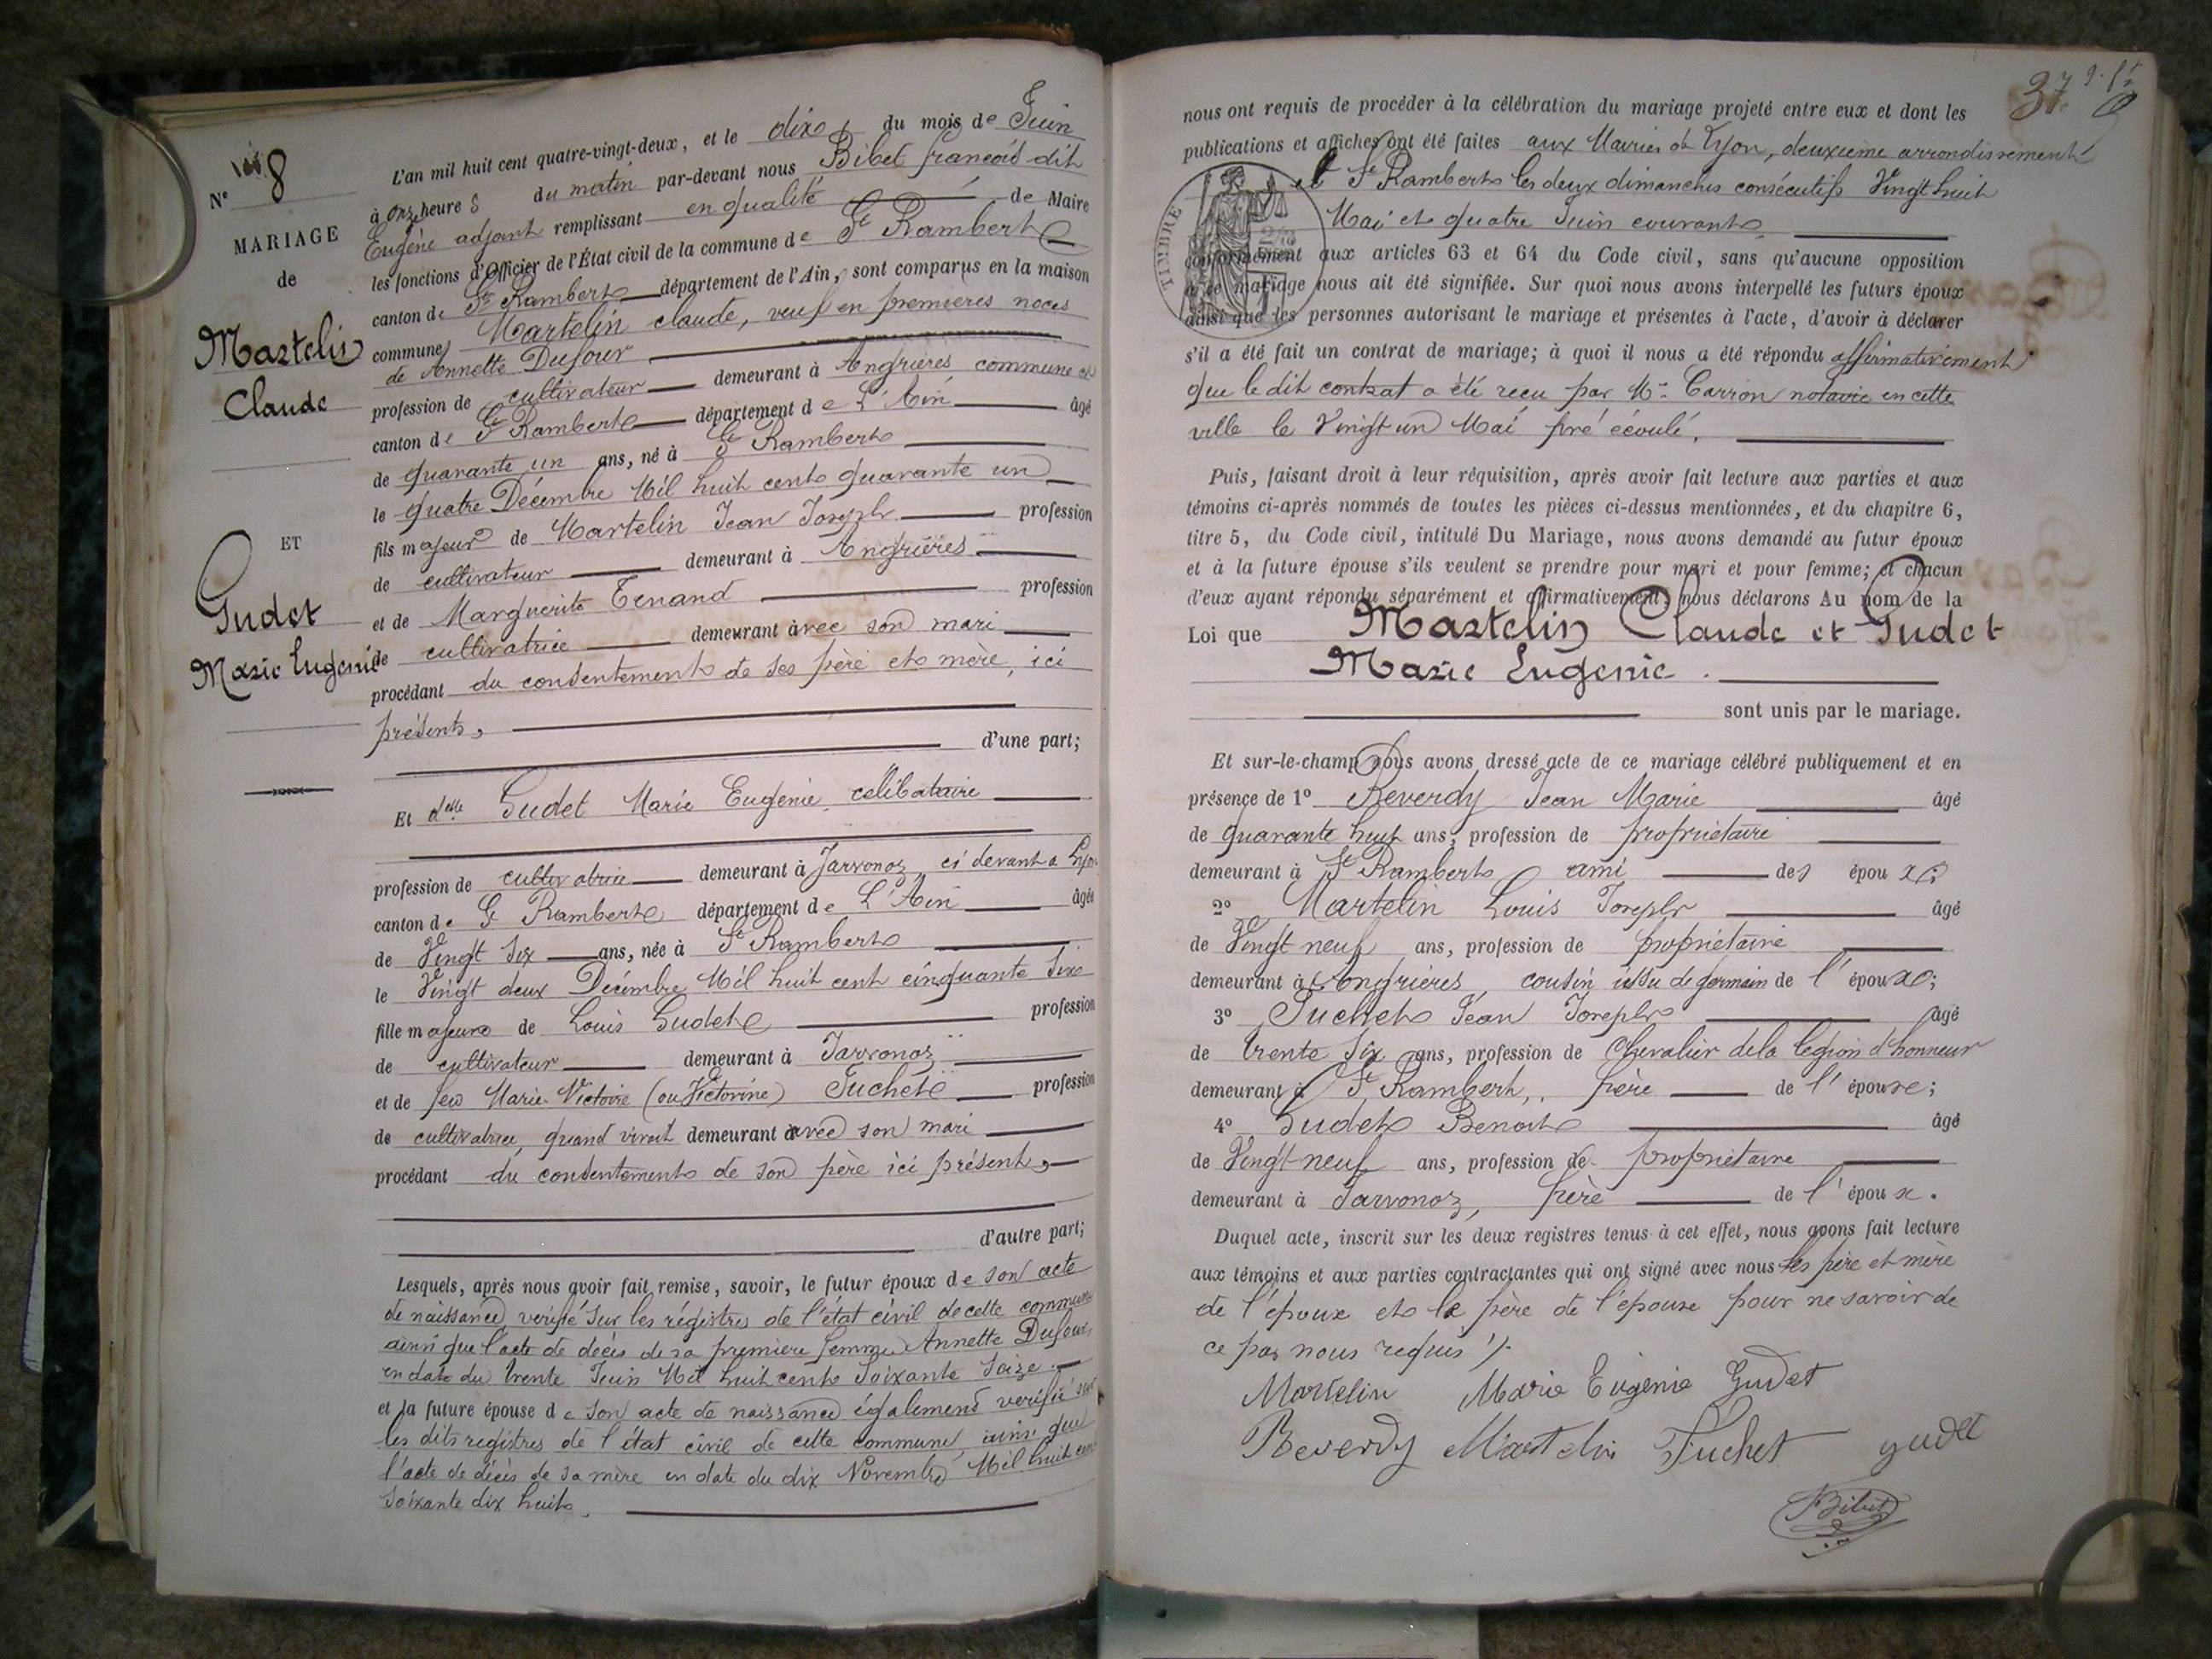 N° 8
MARIAGE
de
Martelin
Claude
ET
Gudet
Marie Eugenie
L'an mil huit cent quatre-vingt-deux, et le dix du mois de Juin
à onze heures du matin par-devant nous Bibet françois dit
Eugène adjoint remplissant en qualité de Maire
les fonctions d'Officier de l'État civil de la commune de St Rambert
canton de St Rambert département de l'Ain, sont comparus en la maison
commune Martelin claude, veuf en premières noces
de Annette Dufour
profession de cultivateur demeurant à Angrières commune et
canton de St Rambert département de L'Ain âgé
de quarante un ans, né à St Rambert
le quatre Décembre Mil huit cent quarante un
fils majeur de Martelin Jean Joseph profession
de cultivateur demeurant à Angrières
et de Marguerite Tenand profession
de cultivatrice demeurant avec son mari
procédant du consentement de ses père et mère, ici
présents,
d'une part;
Et delle Gudet Marie Eugénie célibataire
profession de cultivatrice demeurant à Javronoz, ci devant à Lyon
canton de St Rambert département de L'Ain âgée
de Vingt six ans, née à St Rambert
le Vingt deux Décembre Mil huit cent cinquante six
fille majeure de Louis Gudet profession
de cultivateur demeurant à Javronoz
et de feu Marie Victoire (ou Victorine) Juchet profession
de cultivatrice, quand vivait demeurant avec son mari
procédant du consentement de son père ici présent,
d'autre part;
Lesquels, après nous avoir fait remise, savoir, le futur époux de son acte
de naissance vérifié sur les régistres de l'état civil de cette commune
ainsi que l'acte de décès de sa première femme Annette Dufour
en date du trente Juin Mil huit cent soixante seize.
et la future épouse de son acte de naissance également vérifié sur
les dits registres de l'état civil de cette commune, ainsi que
l'acte de décès de sa mère en date du dix Novembre Mil huit cent
soixante dix huit.
37
nous ont requis de procéder à la célébration du mariage projeté entre eux et dont les
publications et affiches ont été faites aux Mairies de Lyon, deuxième arrondissement
et St Rambert les deux dimanches consécutifs Vingt huit
Mai et quatre Juin courant
TIMBRE
conformément aux articles 63 et 64 du Code civil, sans qu'aucune opposition
à ce mariage nous ait été signifiée. Sur quoi nous avons interpellé les futurs époux
ainsi que les personnes autorisant le mariage et présentes à l'acte, d'avoir à déclarer
s'il a été fait un contrat de mariage; à quoi il nous a été répondu affirmativement
que le dit contrat a été reçu par Me Carron notaire en cette
ville le Vingt un Mai pré écoulé.
Puis, faisant droit à leur réquisition, après avoir fait lecture aux parties et aux
témoins ci-après nommés de toutes les pièces ci-dessus mentionnées, et du chapitre 6,
titre 5, du Code civil, intitulé Du Mariage, nous avons demandé au futur époux
et à la future épouse s'ils veulent se prendre pour mari et pour femme; et chacun
d'eux ayant répondu séparément et affirmativement, nous déclarons Au nom de la
Loi que Martelin Claude et Gudet
Marie Eugenie.
sont unis par le mariage.
Et sur-le-champ nous avons dressé acte de ce mariage célébré publiquement et en
présence de 1° Reverdy Jean Marie âgé
de quarante huit ans, profession de propriétaire
demeurant à St Rambert ami des époux;
2° Martelin Louis Joseph âgé
de Vingt neuf ans, profession de propriétaire
demeurant à Angrières, cousin issu de germain de l'époux;
3° Juchet Jean Joseph âgé
de trente six ans, profession de chevalier de la légion d'honneur
demeurant à St Rambert, frère de l'épouse;
4° Gudet Benoit âgé
de Vingt neuf ans, profession de propriétaire
demeurant à Javronoz, frère de l'époux.
Duquel acte, inscrit sur les deux registres tenus à cet effet, nous avons fait lecture
aux témoins et aux parties contractantes qui ont signé avec nous les père et mère
de l'époux et le père de l'épouse pour ne savoir de
ce par nous requis
Martelin Marie Eugénie Gudet
Reverdy Martelin Juchet gudet
Bibet